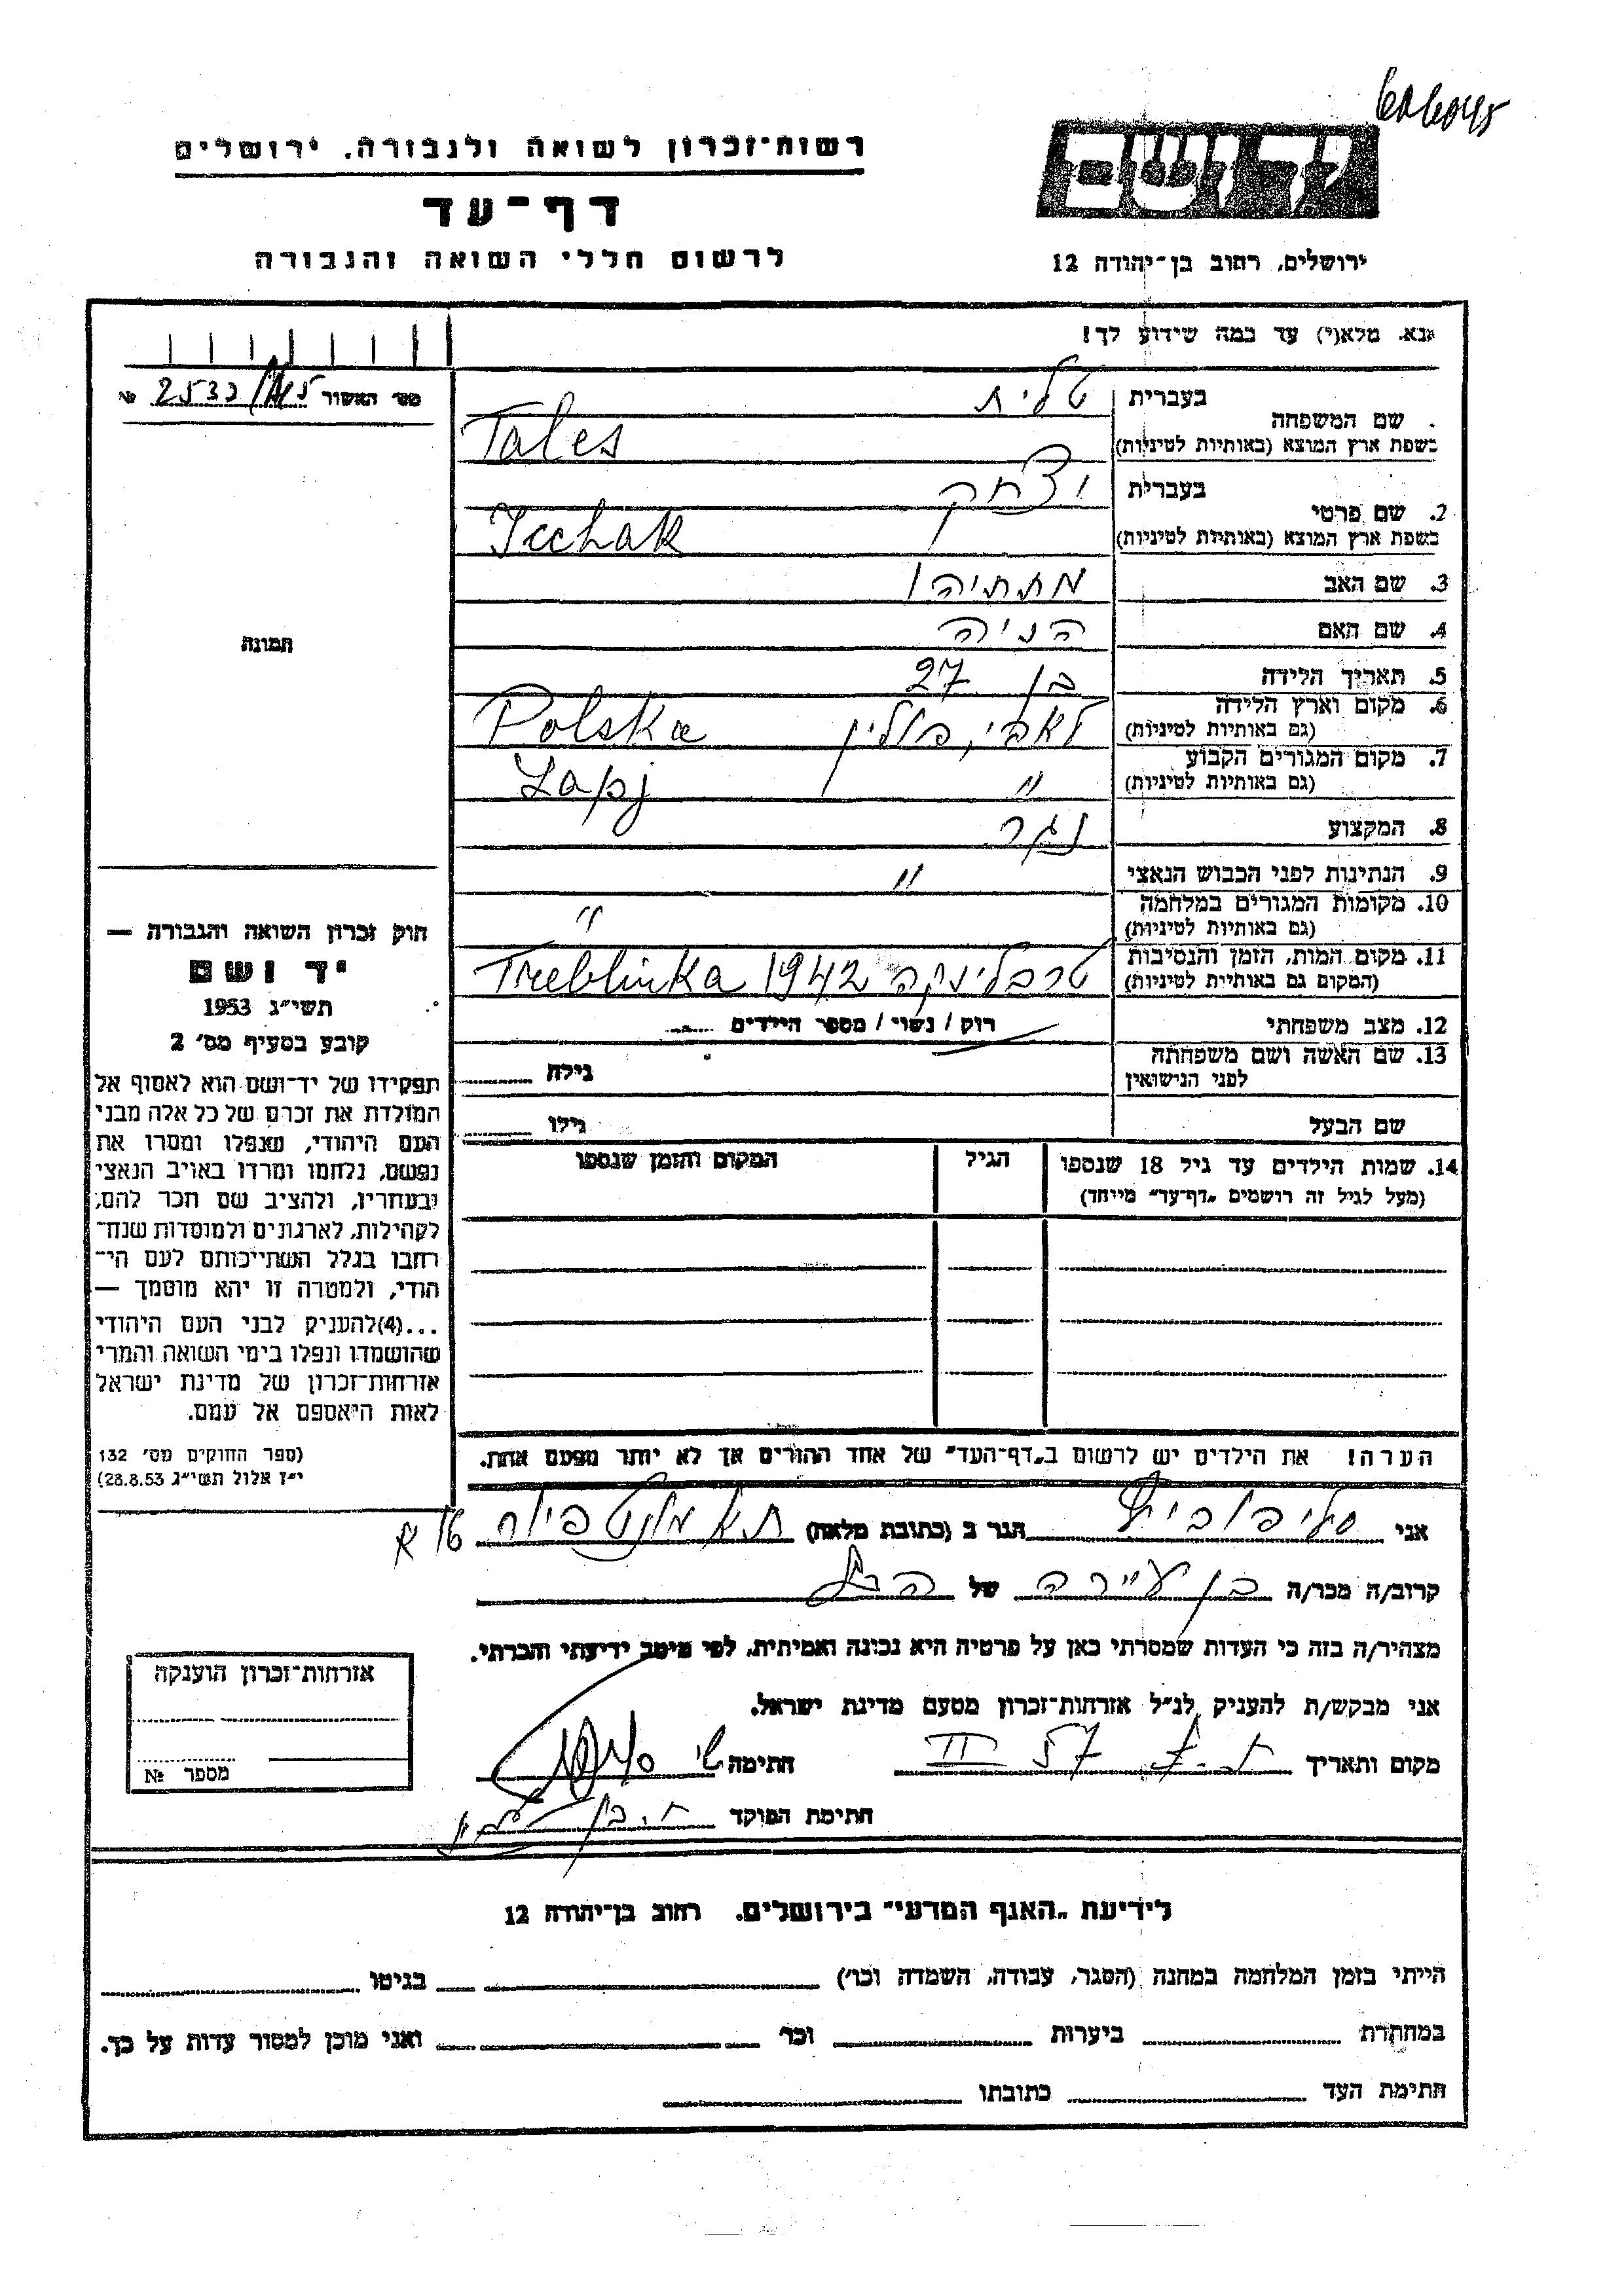 רשות־זכרון לשואה ולגבורה, ירושלים
דף־עד
לרשום חללי השואה והגבורה
יד ושם
ירושלים, רחוב בן־יהודה 12
נא. מלא(י) עד כמה שידוע לך!
מס׳ האשור №
שם המשפחה בעברית טלית
בשפת ארץ המוצא (באותיות לטיניות) Tales
2. שם פרטי בעברית יצחק
בשפת ארץ המוצא (באותיות לטיניות) Icchak
3. שם האב מתתיהו
4. שם האם הניה
5. תאריך הלידה בן 27
6. מקום וארץ הלידה (גם באותיות לטיניות) לאפי, פולין Polska
7. מקום המגורים הקבוע (גם באותיות לטיניות) " Lapj
8. המקצוע נגר
9. הנתינות לפני הכבוש הנאצי "
10. מקומות המגורים במלחמה (גם באותיות לטיניות) "
11. מקום המות, הזמן והנסיבות (המקום גם באותיות לטיניות) טרבלינקה 1942 Treblinka
12. מצב משפחתי רוק / נשוי / מספר הילדים
13. שם האשה ושם משפחתה לפני הנישואין גילה
שם הבעל גילו
14. שמות הילדים עד גיל 18 שנספו הגיל המקום והזמן שנספו
(מעל לגיל זה רושמים "דף־עד" מיוחד)
הערה! את הילדים יש לרשום ב"דף־העד" של אחד ההורים אך לא יותר מפעם אחת.
תמונה
חוק זכרון השואה והגבורה —
יד ושם
תשי״ג 1953
קובע בסעיף מס׳ 2
תפקידו של יד־ושם הוא לאסוף אל
המולדת את זכרם של כל אלה מבני
העם היהודי, שנפלו ומסרו את
נפשם, נלחמו ומרדו באויב הנאצי
ובעוזריו, ולהציב שם וזכר להם,
לקהילות, לארגונים ולמוסדות שנח־
רבו בגלל השתייכותם לעם הי־
הודי, ולמטרה זו יהא מוסמך —
...(4)להעניק לבני העם היהודי
שהושמדו ונפלו בימי השואה והמרי
אזרחות־זכרון של מדינת ישראל
לאות היאספם אל עמם.
(ספר החוקים מס׳ 132
י״ז אלול תשי״ג 28.8.53)
אני הגר ב (כתובת מלאה)
קרוב/ה מכר/ה בן עיירה של
מצהיר/ה בזה כי העדות שמסרתי כאן על פרטיה היא נכונה ואמיתית, לפי מיטב ידיעתי והכרתי.
אני מבקש/ת להעניק לנ״ל אזרחות־זכרון מטעם מדינת ישראל.
מקום ותאריך 57 II חתימה
חתימת הפוקד
אזרחות־זכרון הוענקה
מספר №
לידיעת "האגף המדעי" בירושלים, רחוב בן־יהודה 12
הייתי בזמן המלחמה במחנה (הסגר, עבודה, השמדה וכו׳) בגיטו
במחתרת ביערות וכו׳ ואני מוכן למסור עדות על כך.
חתימת העד כתובתו